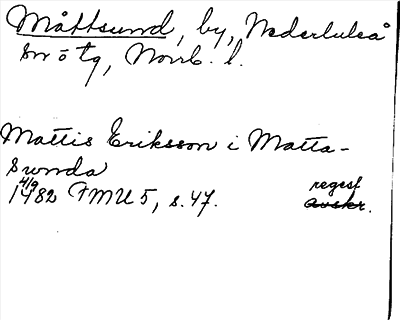 Måttsund, by, Nederluleå
sn o tg, Norrb. l.
Mattis Eriksson i Matta-
sunda
4/9
1482 FMU 5, s. 47.
regest
avskr.